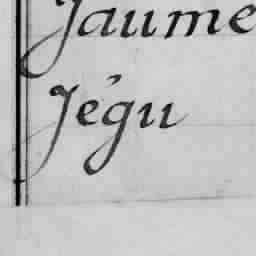 Jaume
Jégu